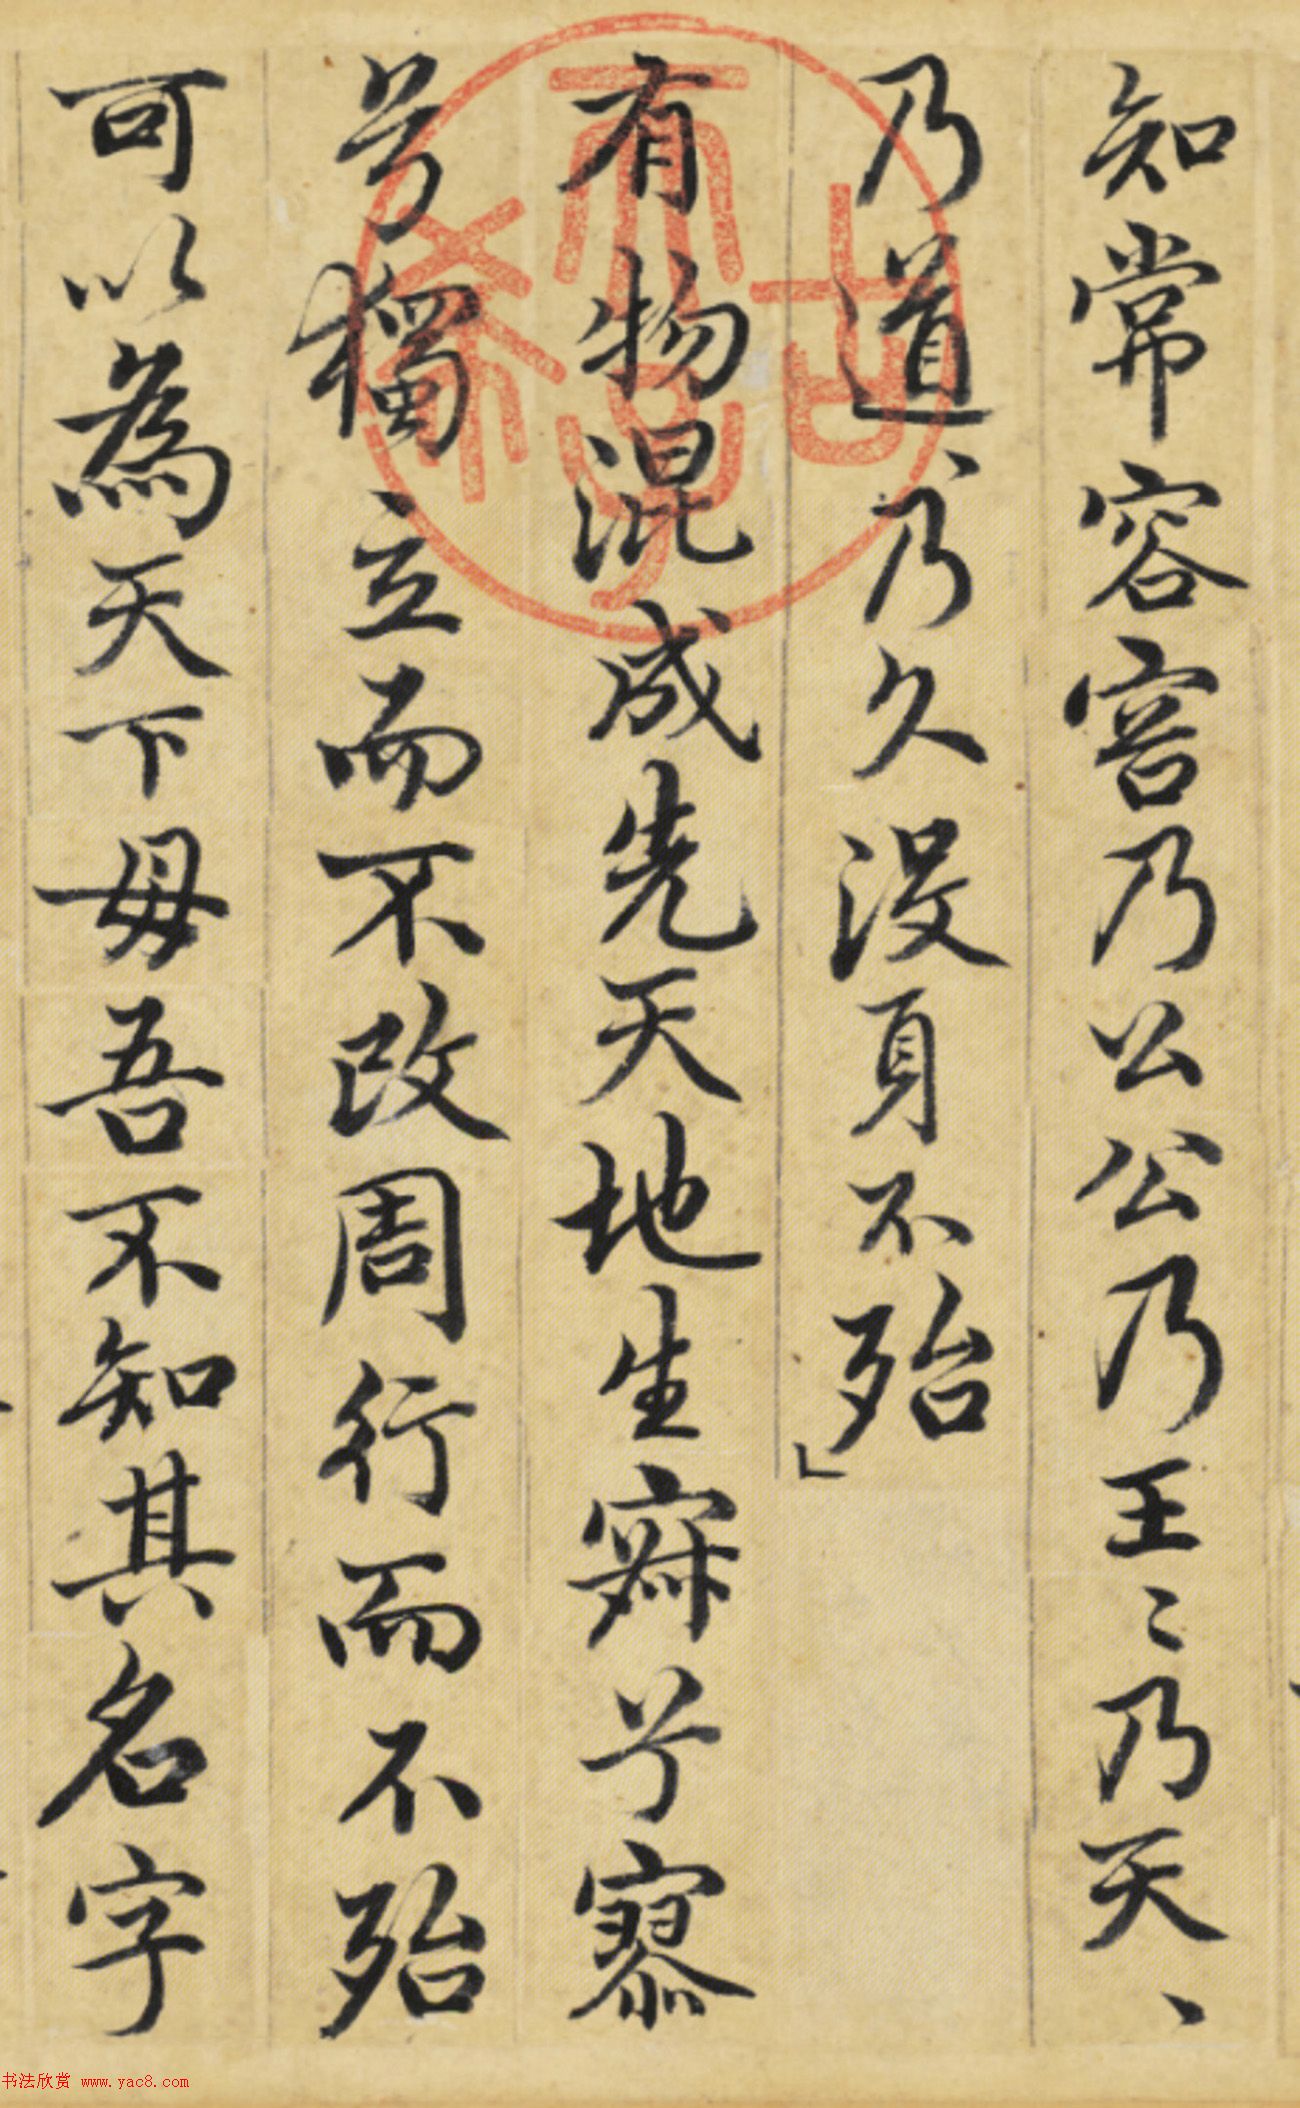 知常容容乃公公乃王〻乃天〻
乃道〻乃久没身不殆
有物混成先天地生寂兮寥
兮獨立而不改周行而不殆
可以為天下母吾不知其名字
书法欣赏 www.yac8.com